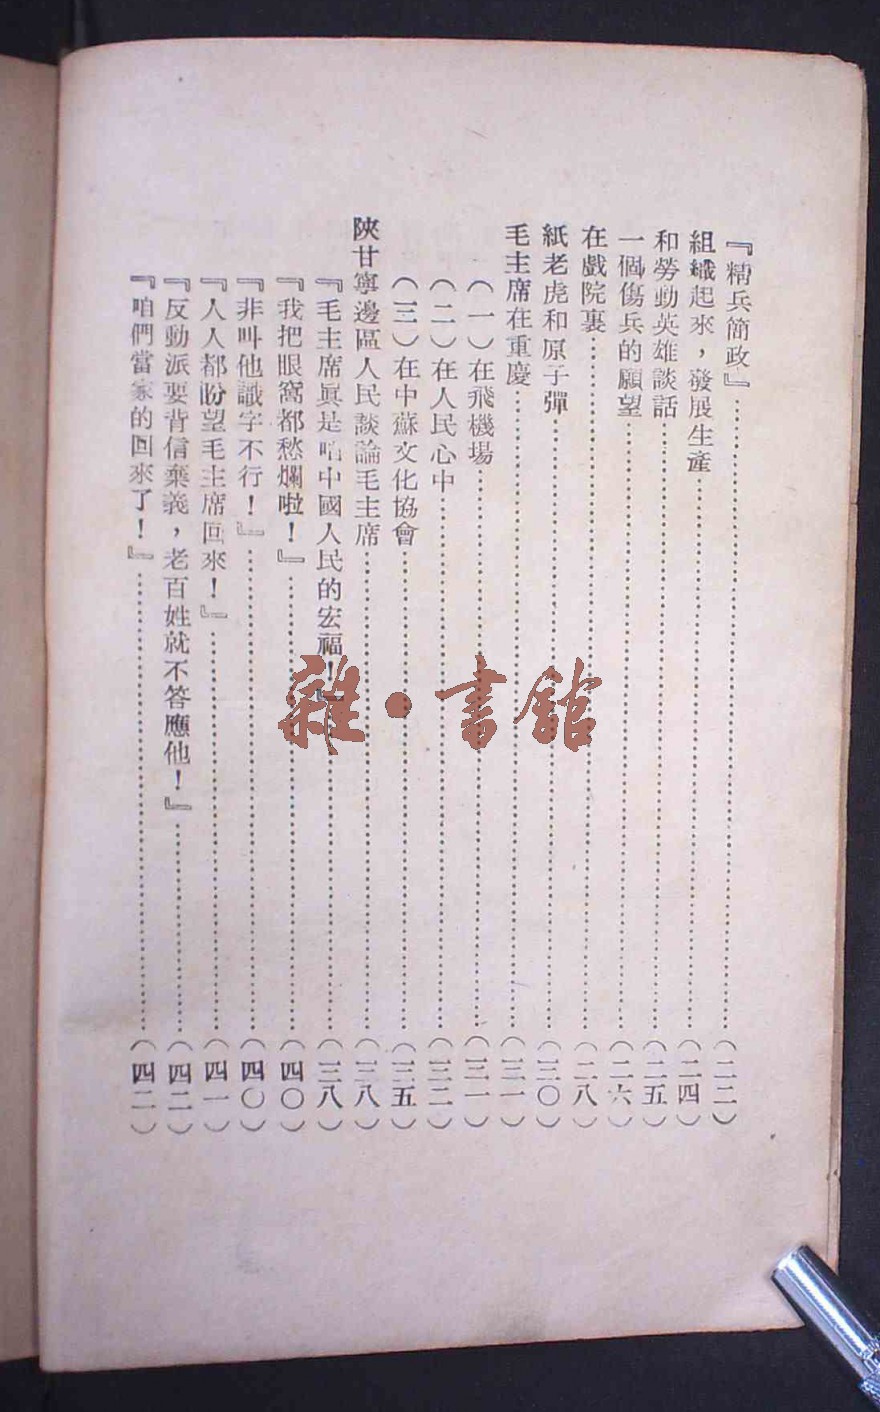 『精兵簡政』……(二二)
組織起來，發展生產……(二四)
和勞動英雄談話……(二五)
一個傷兵的願望……(二六)
在戲院裏……(二八)
紙老虎和原子彈……(三〇)
毛主席在重慶……(三一)
(一)在飛機場……(三一)
(二)在人民心中……(三二)
(三)在中蘇文化協會……(三五)
陝甘寧邊區人民談論毛主席……(三八)
『毛主席眞是咱中國人民的宏福！』……(三八)
『我把眼窩都愁爛啦！』……(四〇)
『非叫他識字不行！』……(四〇)
『人人都盼望毛主席回來！』……(四一)
『反動派要背信棄義，老百姓就不答應他！』……(四二)
『咱們當家的回來了！』……(四二)
雜·書館